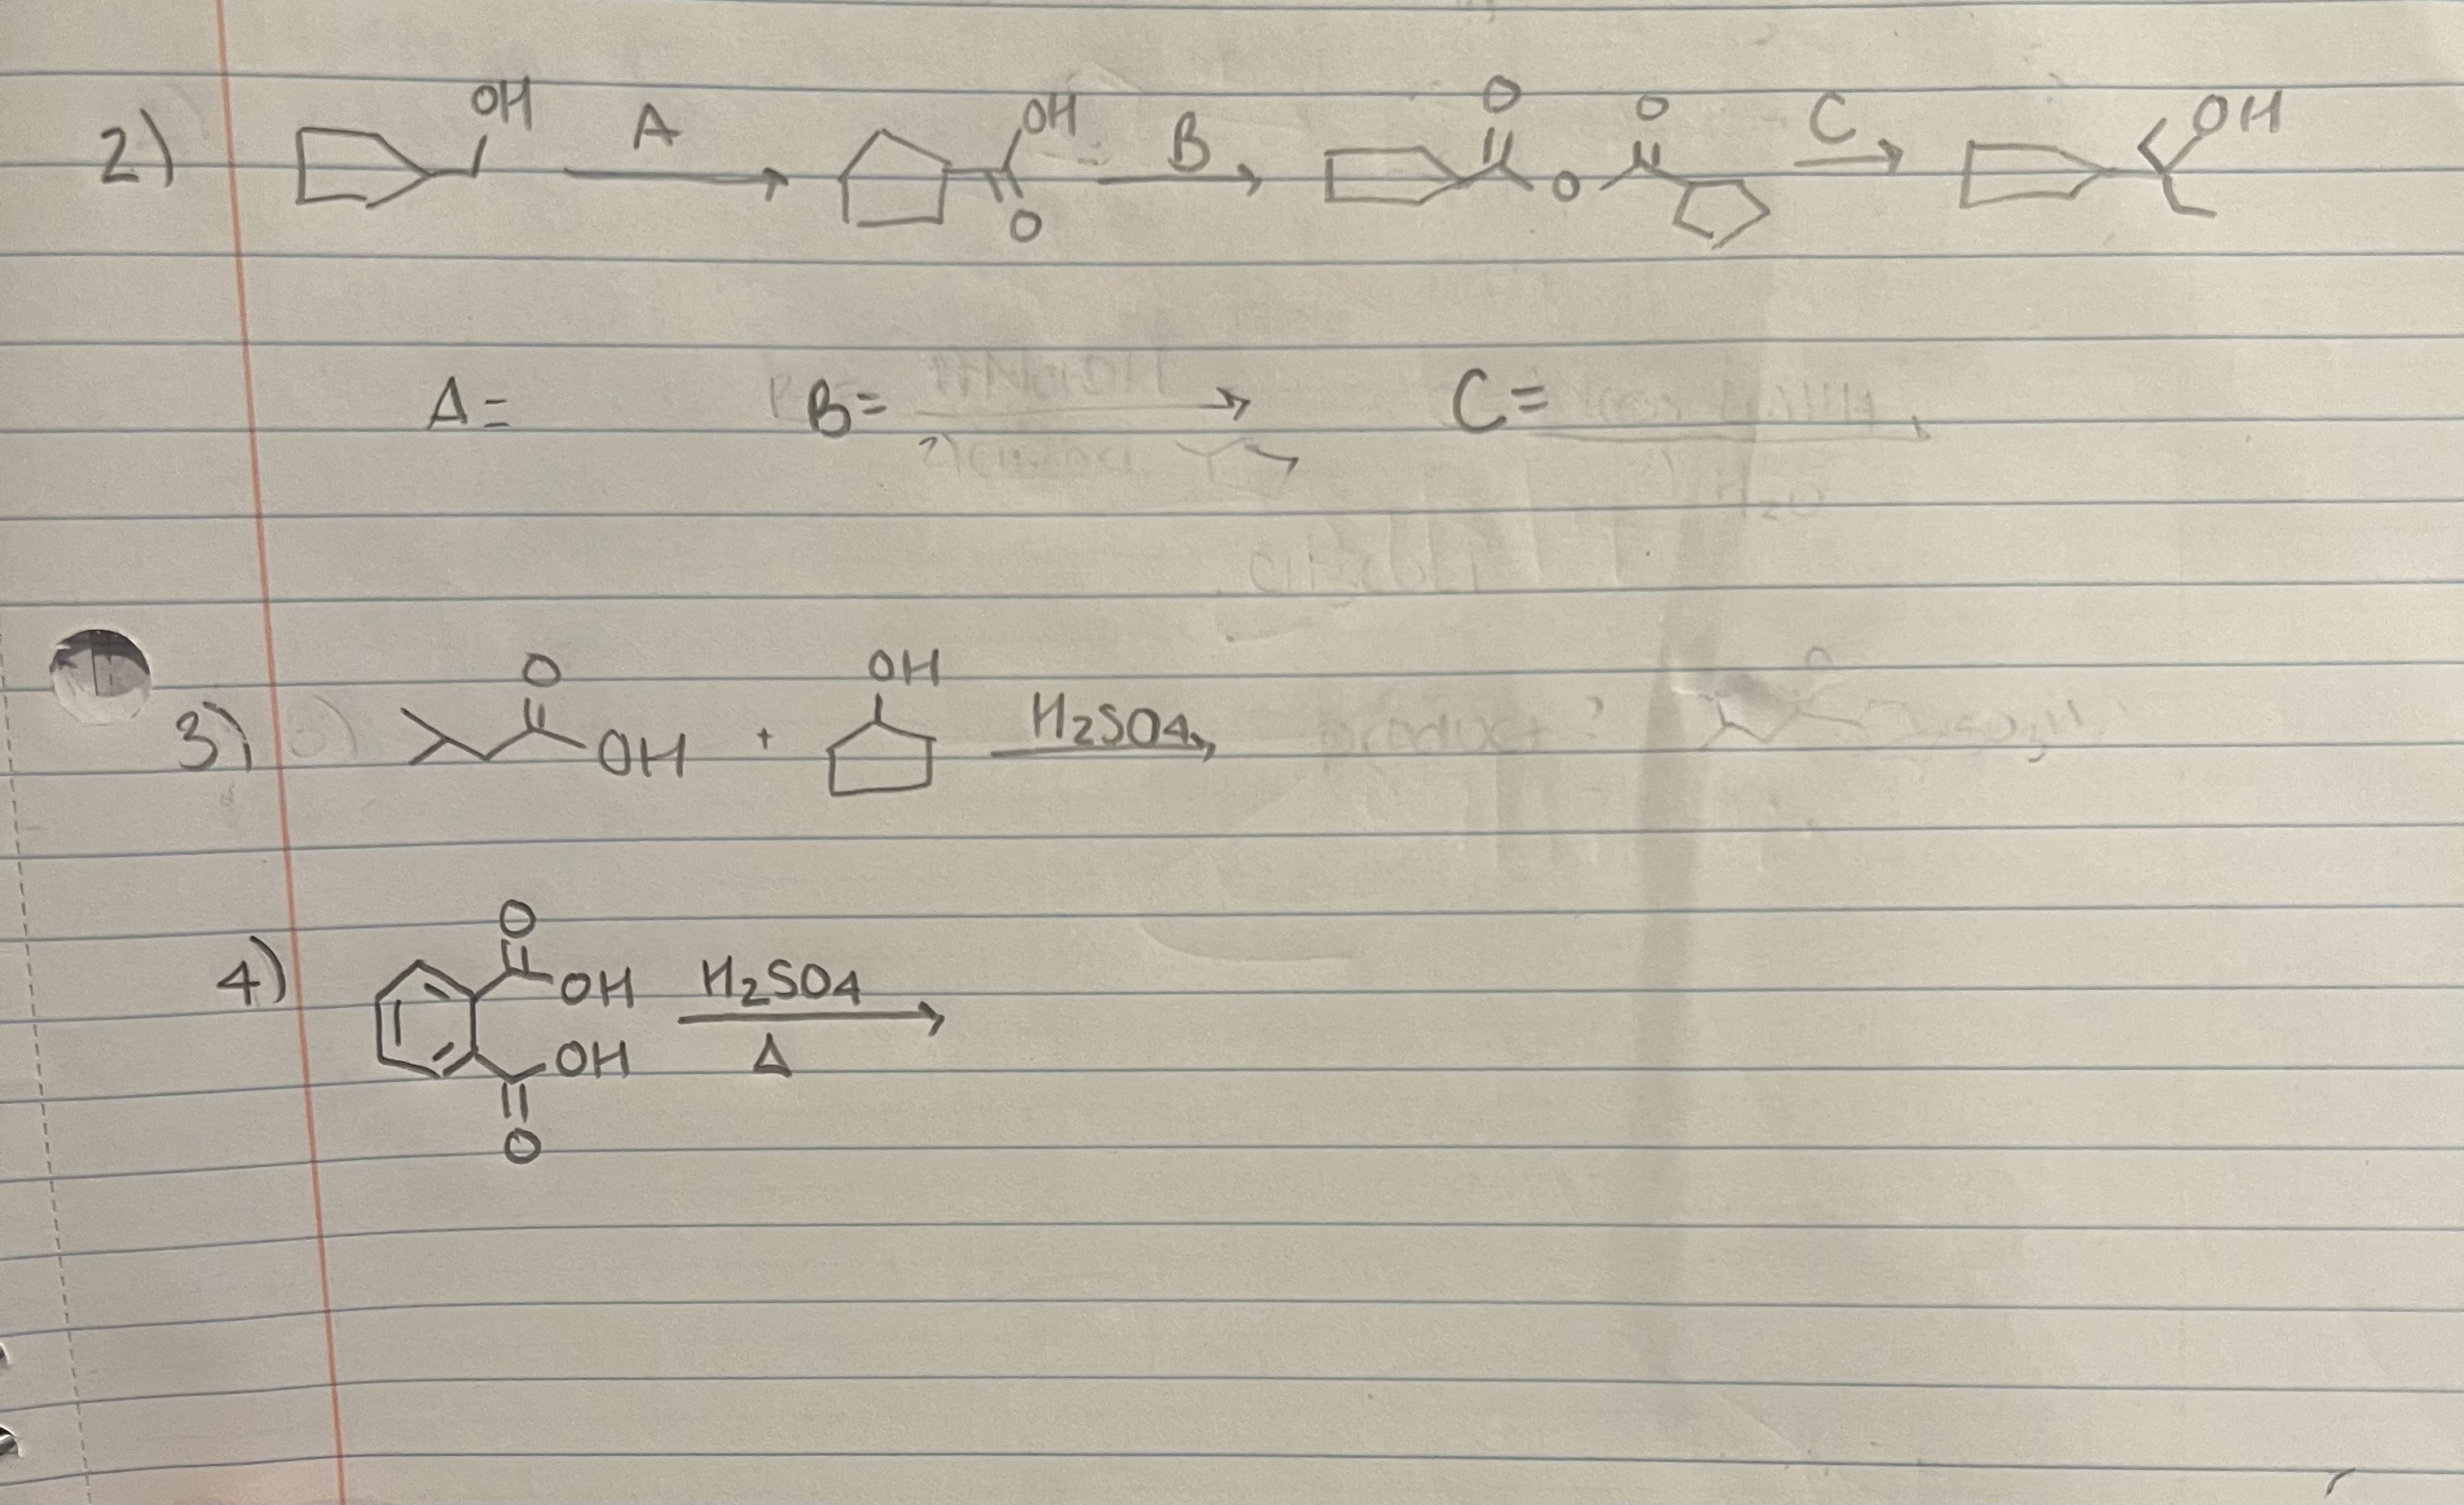 2) OH A OH O B O O O C OH
A= B= C=
3) O OH + OH H2SO4
4) O OH OH O H2SO4 Δ